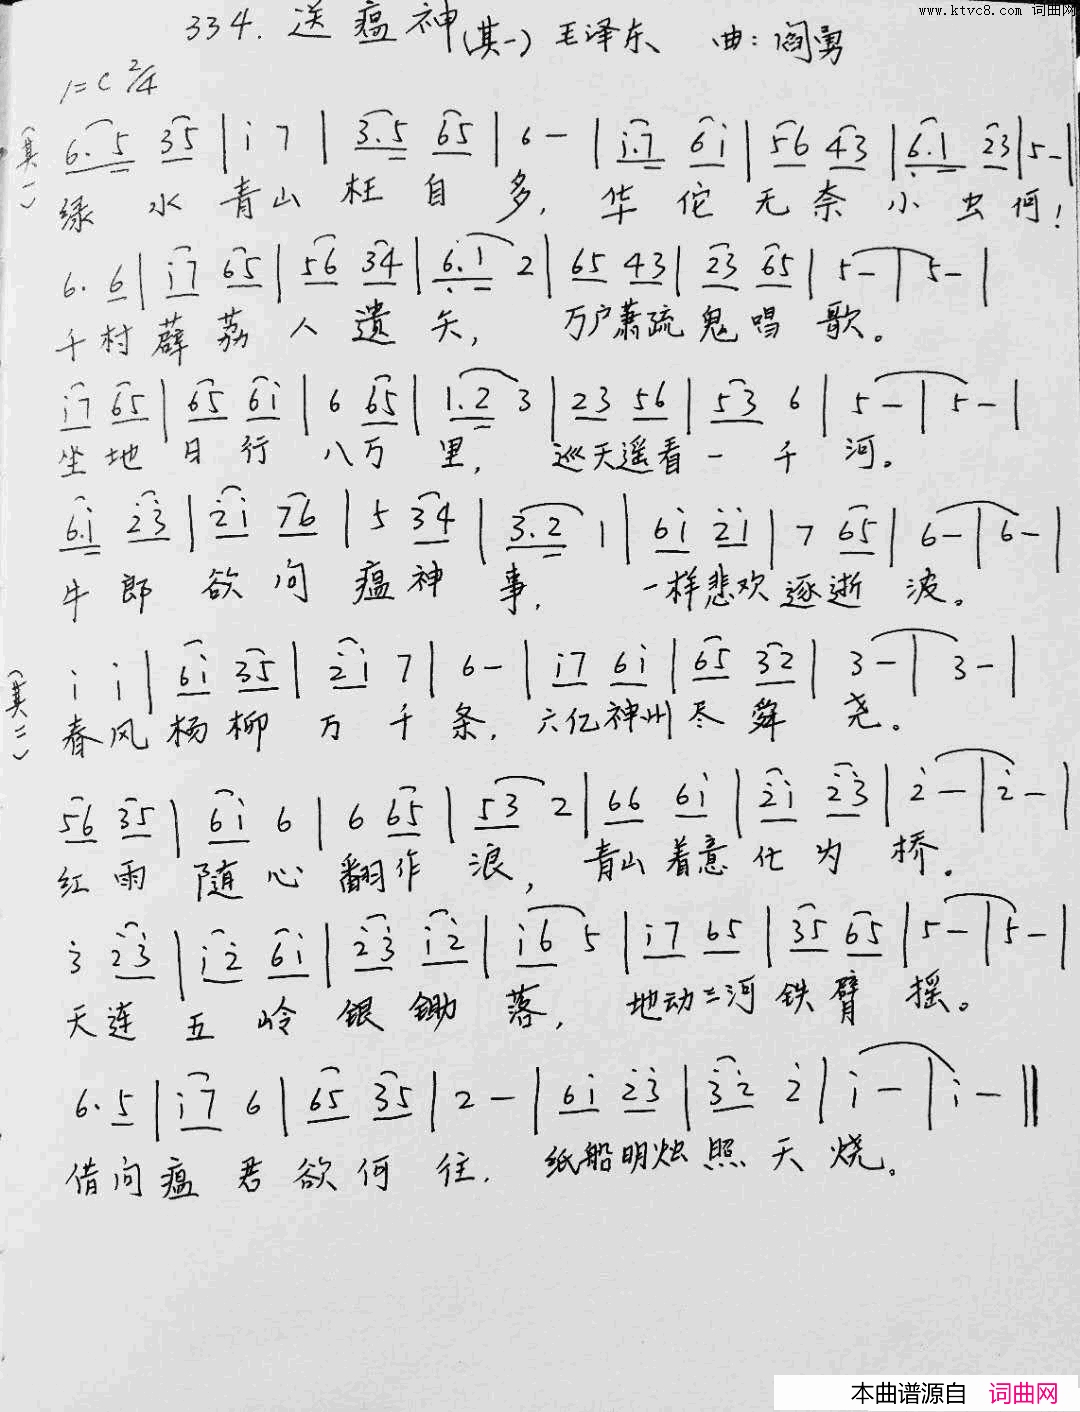 www.ktvc8.com 词曲网
334. 送瘟神(其一) 毛泽东 曲: 阎勇
1=C 2/4
(其一) 6.5 35 | i 7 | 3.5 65 | 6 – | i.7 6i | 56 43 | 6.1 23 | 5 – |
绿水青山枉自多, 华佗无奈小虫何!
6. 6 | i7 65 | 56 34 | 6.1 2 | 65 43 | 23 65 | 5 – | 5 – |
千村薜荔人遗矢, 万户萧疏鬼唱歌。
i7 65 | 65 6i | 6 65 | 1.2 3 | 23 56 | 53 6 | 5 – | 5 – |
坐地日行八万里, 巡天遥看一千河。
6.i 2̇3̇ | 2̇i 76 | 5 34 | 3.2 1 | 6i 2̇i | 7 65 | 6 – | 6 – |
牛郎欲问瘟神事, 一样悲欢逐逝波。
(其二) i i | 6i 35 | 2̇i 7 | 6 – | i7 6i | 65 32 | 3 – | 3 – |
春风杨柳万千条, 六亿神州尽舜尧。
56 35 | 6i 6 | 6 65 | 53 2 | 66 6i | 2̇i 2̇3̇ | 2̇ – | 2̇ – |
红雨随心翻作浪, 青山着意化为桥。
3̇ 2̇3̇ | i2̇ 6i | 2̇3̇ i2̇ | i6 5 | i7 65 | 35 65 | 5 – | 5 – |
天连五岭银锄落, 地动三河铁臂摇。
6. 5 | i7 6 | 65 35 | 2 – | 6i 2̇3̇ | 3̇2̇ 2̇ | i – | i – ‖
借问瘟君欲何往. 纸船明烛照天烧。
本曲谱源自 词曲网